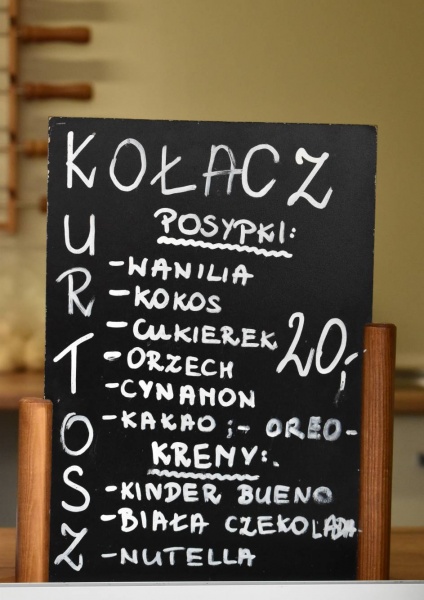 KOŁACZ
KURTOSZ
POSYPKI:
-WANILIA
-KOKOS
-CUKIEREK
20,-
-ORZECH
-CYNAMON
-KAKAO ;- OREO-
KREMY:.
-KINDER BUENO
-BIAŁA CZEKOLADA
-NUTELLA